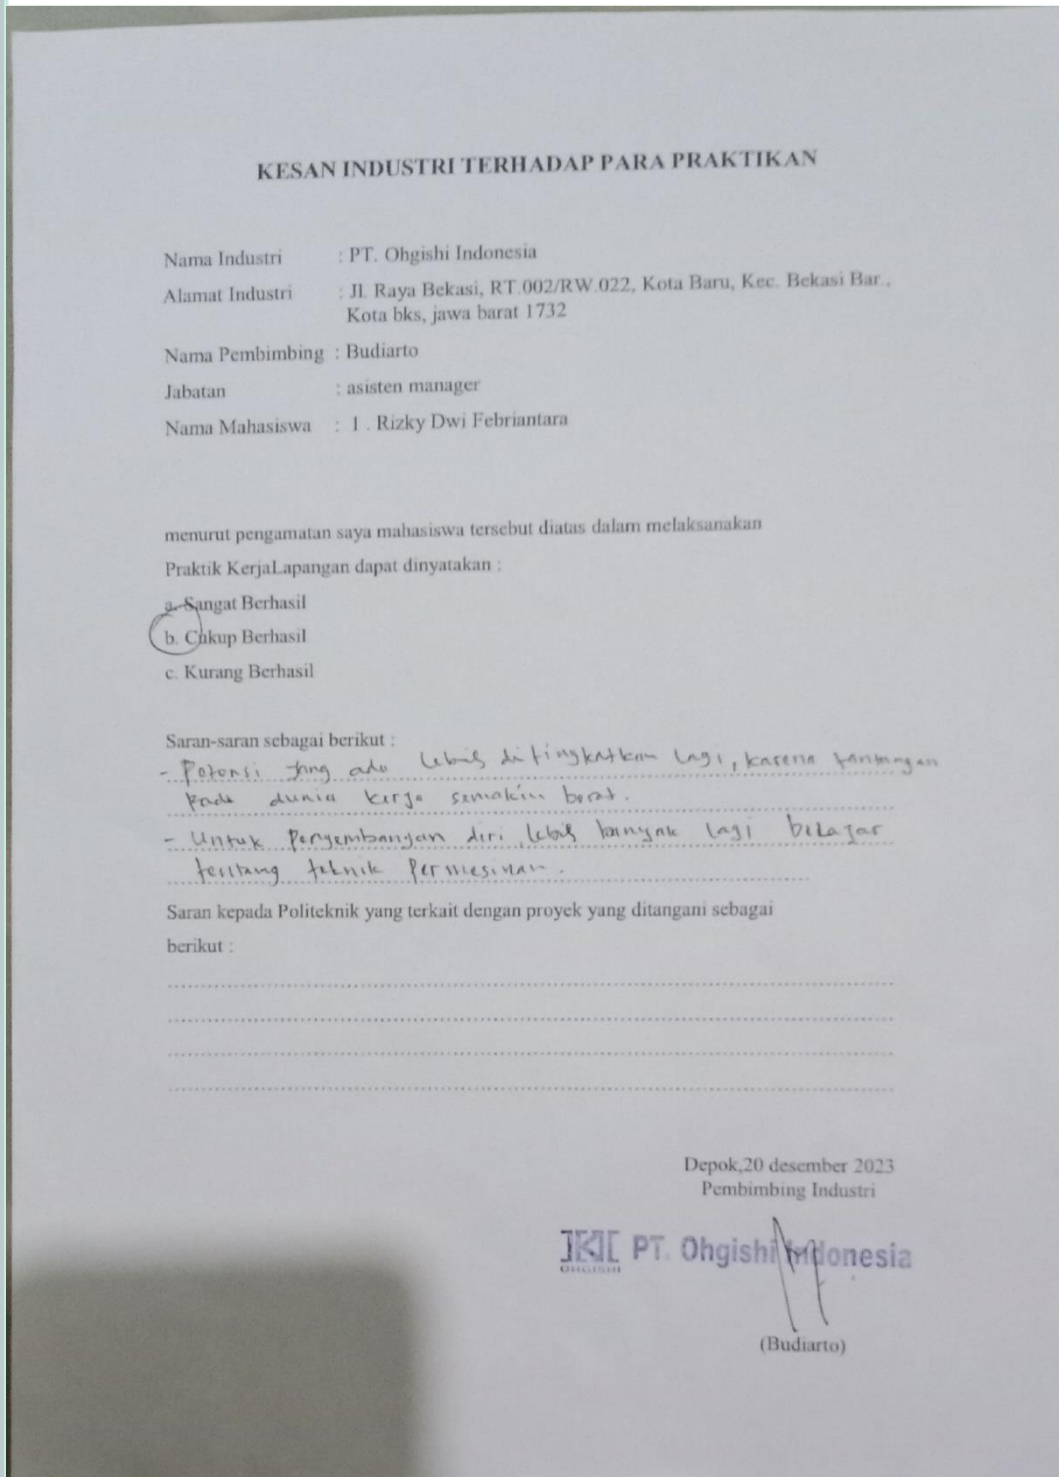 KESAN INDUSTRI TERHADAP PARA PRAKTIKAN
Nama Industri : PT. Ohgishi Indonesia
Alamat Industri : Jl. Raya Bekasi, RT.002/RW.022, Kota Baru, Kec. Bekasi Bar.,
Kota bks, jawa barat 1732
Nama Pembimbing : Budiarto
Jabatan : asisten manager
Nama Mahasiswa : 1 . Rizky Dwi Febriantara
menurut pengamatan saya mahasiswa tersebut diatas dalam melaksanakan
Praktik KerjaLapangan dapat dinyatakan :
a. Sangat Berhasil
b. Cukup Berhasil
c. Kurang Berhasil
Saran-saran sebagai berikut :
- Potensi yang ada lebih ditingkatkan lagi, karena tantangan
pada dunia kerja semakin berat.
- Untuk Pengembangan diri, lebih banyak lagi belajar
tentang teknik Permesinan.
Saran kepada Politeknik yang terkait dengan proyek yang ditangani sebagai
berikut :
Depok,20 desember 2023
Pembimbing Industri
OHGISHI PT. Ohgishi Indonesia
(Budiarto)